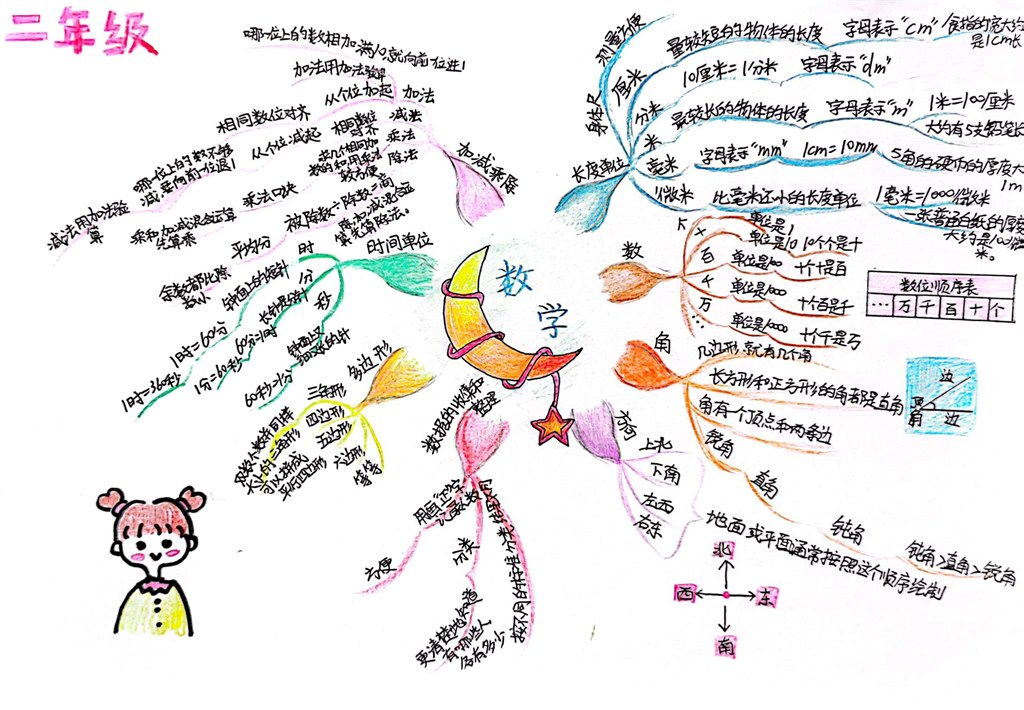 二年级
数学
长度单位
单位尺
测量方便
厘米
量较短的物体的长度
字母表示"cm"
食指的宽大约是1cm长
分米
10厘米=1分米
字母表示"dm"
米
最较长的物体的长度
字母表示"m"
1米=100厘米
大约有5支铅笔长
毫米
字母表示"mm"
1cm=10mm
5角的硬币的厚度大
1m
微米
比毫米还小的长度单位
1毫米=1000微米
一张普通白纸的厚度
大约是100微
米。
数
个
单位是1
十
单位是10
10个个是十
百
单位是100
十个十是百
千
单位是1000
十个百是千
万
单位是10000
十个千是万
数位顺序表
… 万 千 百 十 个
角
几边形就有几个角
长方形和正方形的角都是直角
角有一个顶点和两条边
锐角
直角
钝角
钝角>直角>锐角
边
顶
角
边
方向
上北
下南
左西
右东
地面或平面通常按照这个顺序绘制
北
西
东
南
数据的收集和
整理
用画"正"字
记录数
方便
分类
更清楚地知道
有哪些人
各有多少
按不同的标准分类
多边形
三角形
四边形
五边形
六边形
等等
可以拼成
平行四边形
时间单位
时
钟面上的短针
1时=60分
1时=360秒
1分
长针走
60分=1时
1分=60秒
秒
钟面上
60秒=1分
加减乘除
加法
从个位加起
相同数位对齐
加法用加法验算
哪一位上的数相加满10就向前一位进1
减法
相同数位
对齐
从个位减起
哪一位上的数不够
减,要向前一位退1
减法用加法验
算
乘法
求几个相同加
数的和用乘法
较方便
乘法口诀
乘和加减混合运算
先算乘
除法
被除数÷除数=商
除加减混合运
算先算除法。
平均分
余数都比除
数小